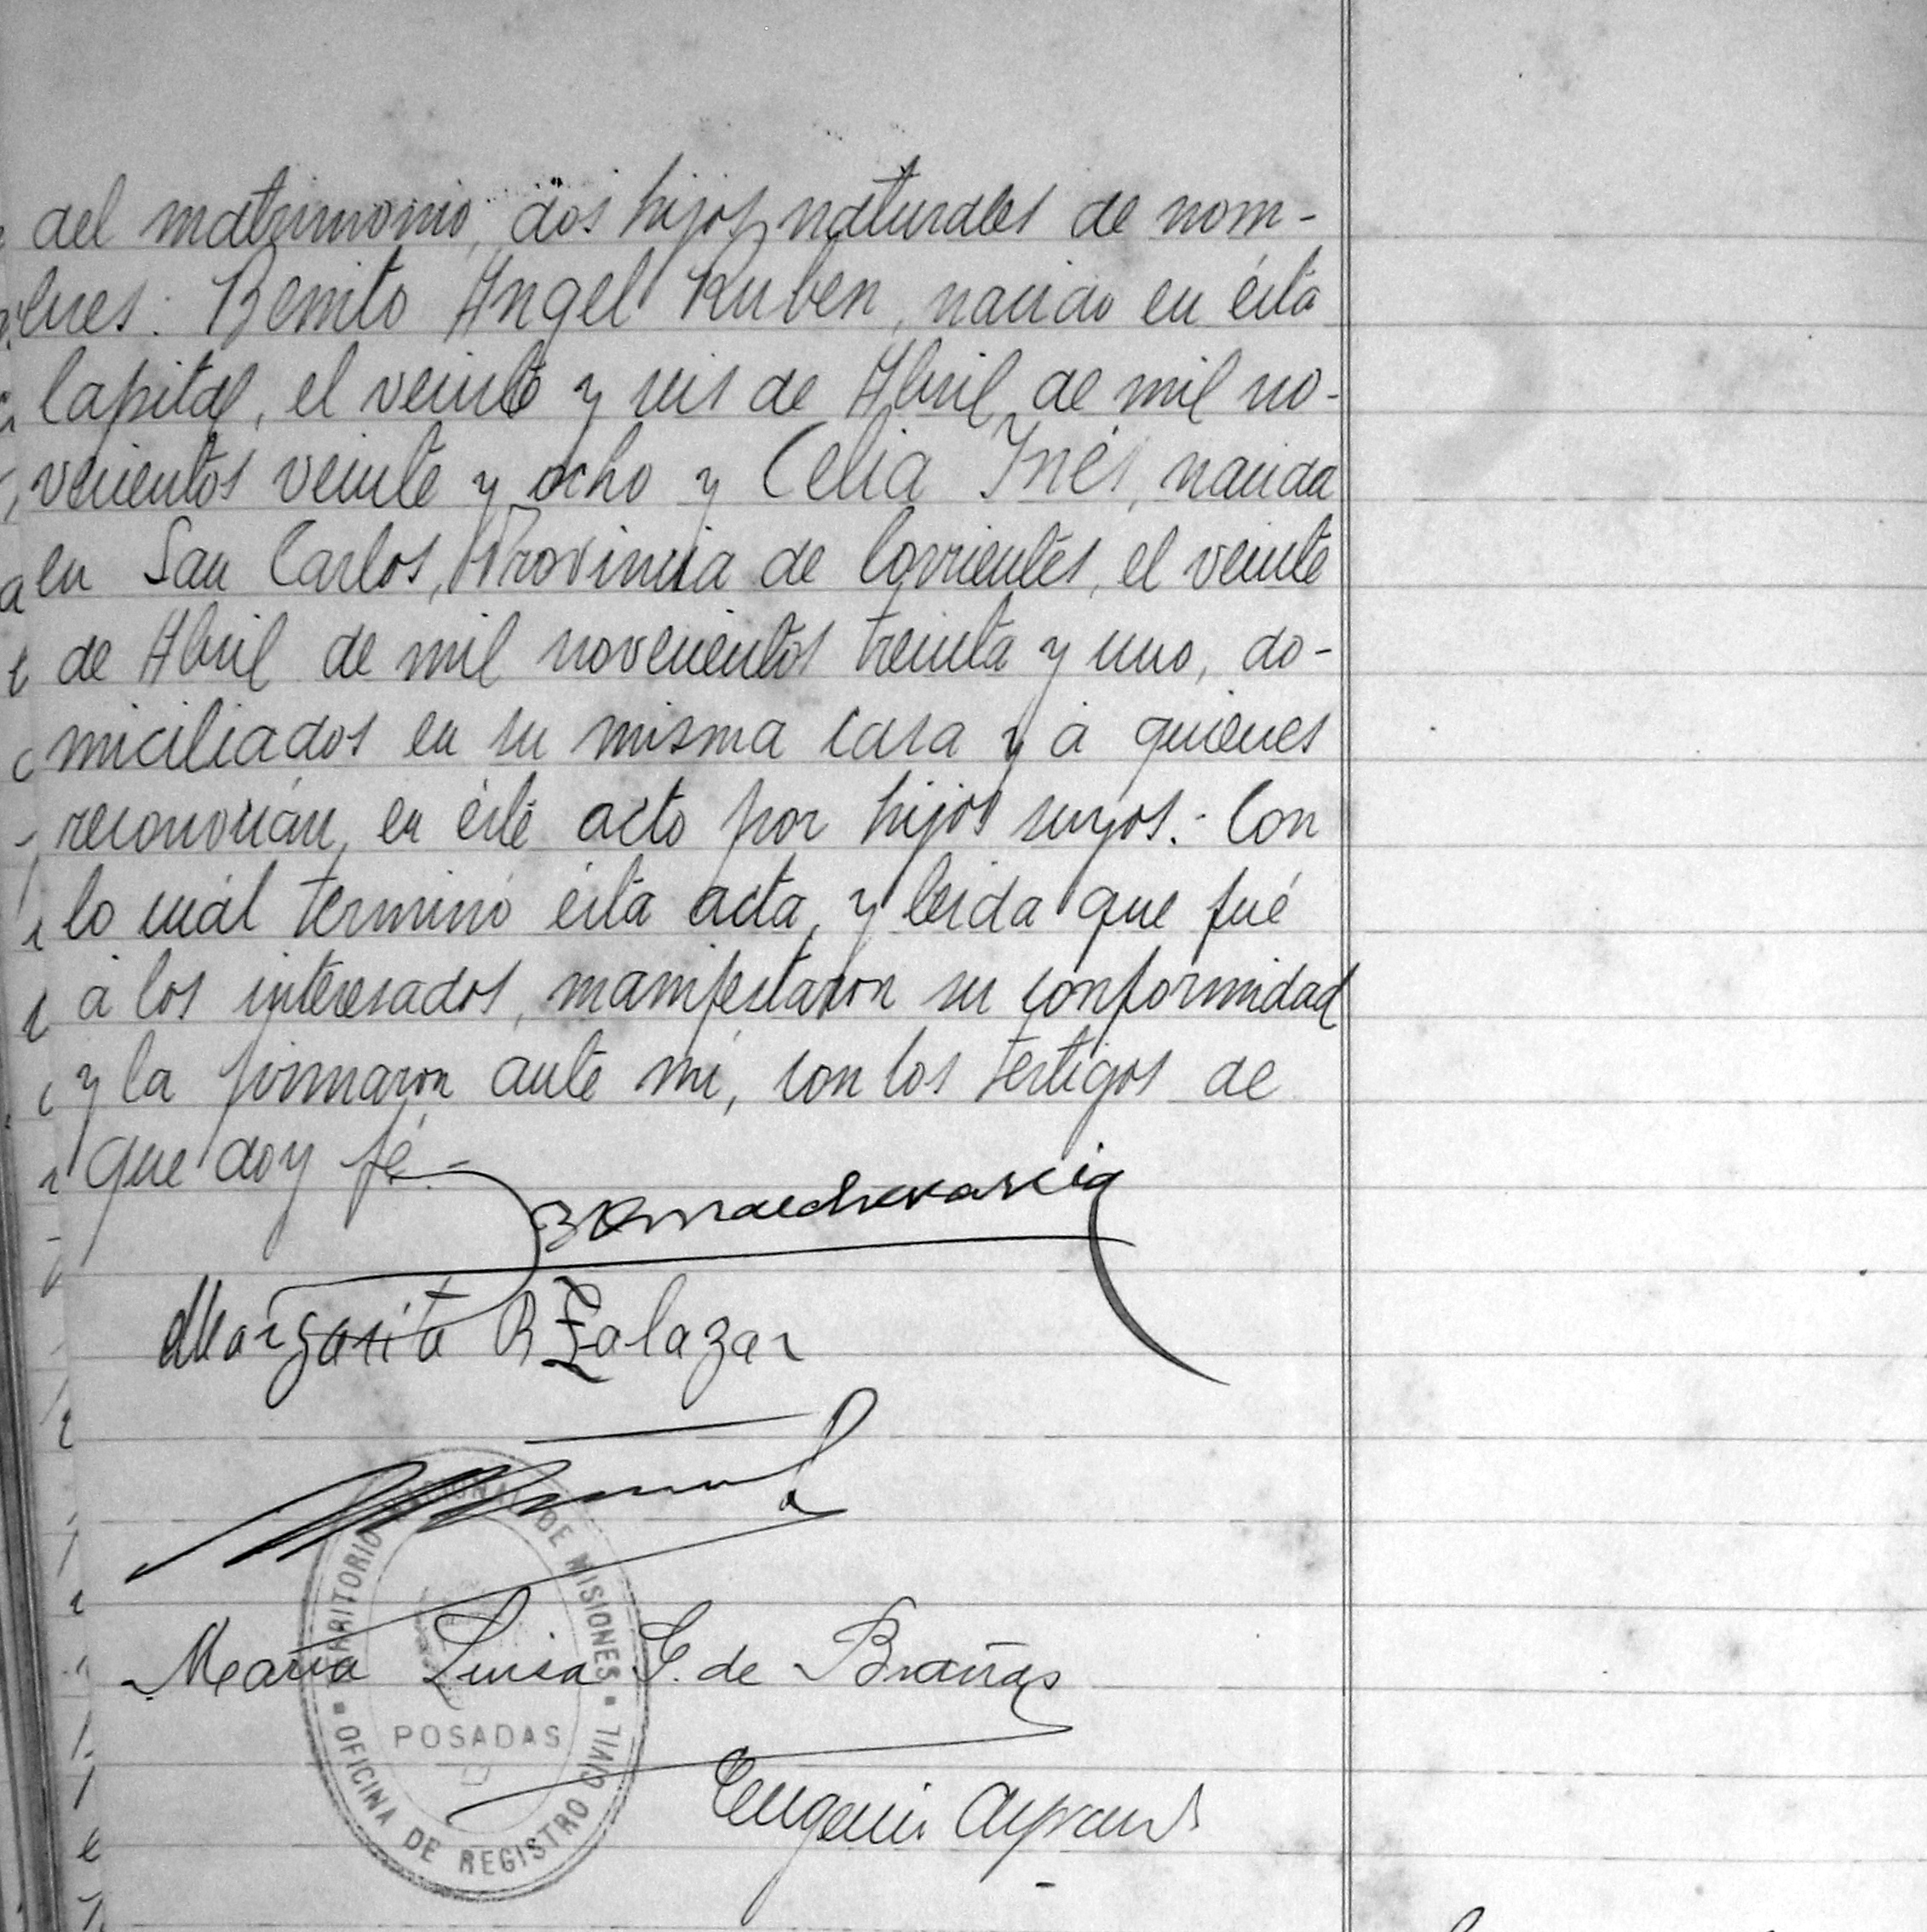 del matrimonio, dos hijos naturales de nom-
bres: Benito Angel Ruben, nacido en ésta
Capital, el veinte y seis de Abril de mil no-
vecientos veinte y ocho y Celia Inés, nacida
en San Carlos, Provincia de Corrientes, el veinte
de Abril de mil novecientos treinta y uno, do-
miciliados en su misma casa y á quienes
reconocian, en éste acto por hijos suyos.- Con
lo cuál terminó ésta acta, y leida que fué
á los interesados, manifestaron su conformidad
y la firmaron ante mi, con los testigos de
que doy fé.-
Margarita R Salazar
TERRITORIO NACIONAL DE MISIONES
María Luisa G. de Brañas
POSADAS
OFICINA DE REGISTRO CIVIL
Eugenio